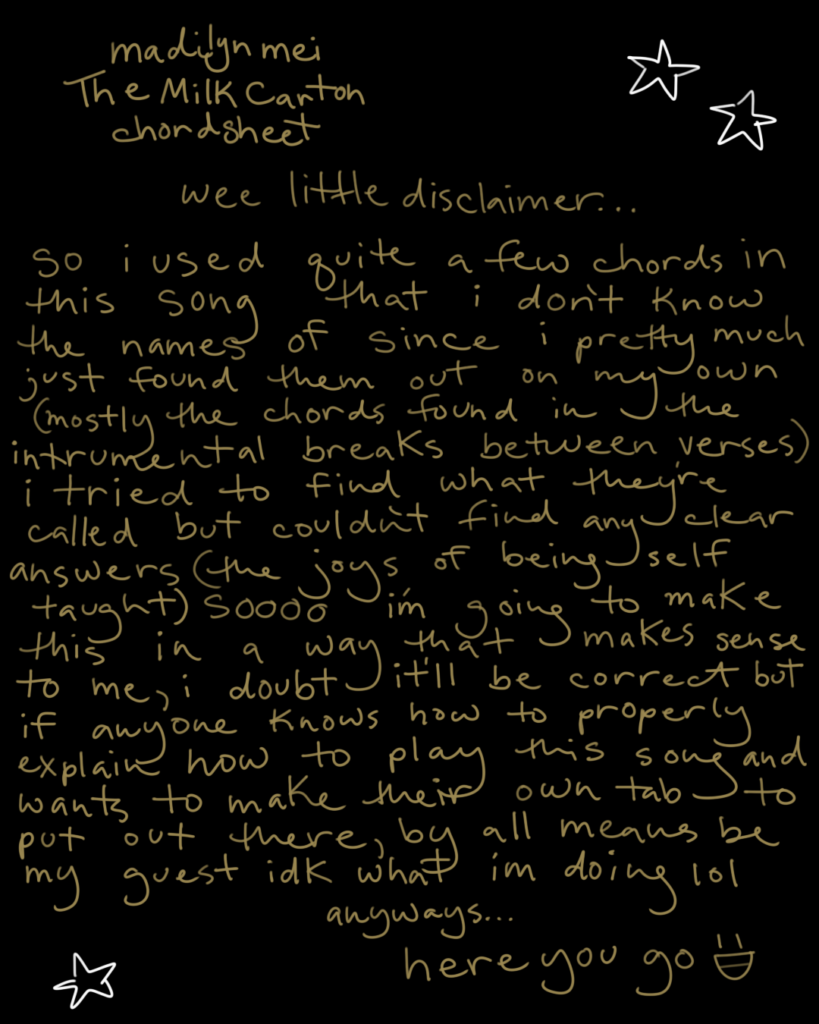 madilyn mei
The Milk Carton
chordsheet
wee little disclaimer...
so i used quite a few chords in
this song that i don't know
the names of since i pretty much
just found them out on my own
(mostly the chords found in the
intrumental breaks between verses)
i tried to find what they're
called but couldn't find any clear
answers (the joys of being self
taught) soooo i'm going to make
this in a way that makes sense
to me, i doubt it'll be correct but
if anyone knows how to properly
explain how to play this song and
wants to make their own tab to
put out there, by all means be
my guest idk what im doing lol
anyways...
here you go